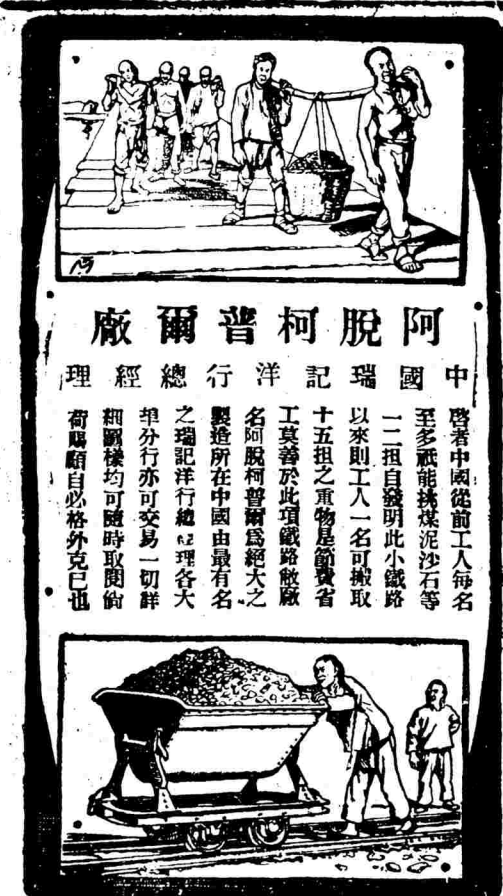 阿脫柯普爾廠
中國瑞記洋行總經理
啓者中國從前工人每名
至多祇能挑煤泥沙石等
一二担自發明此小鐵路
以來則工人一名可搬取
十五担之重物是節費省
工莫善於此項鐵路敝廠
名阿脫柯普爾爲絕大之
製造所在中國由最有名
之瑞記洋行總經理各大
埠分行亦可交易一切詳
細圖樣均可隨時取閱倘
荷賜顧自必格外克已也